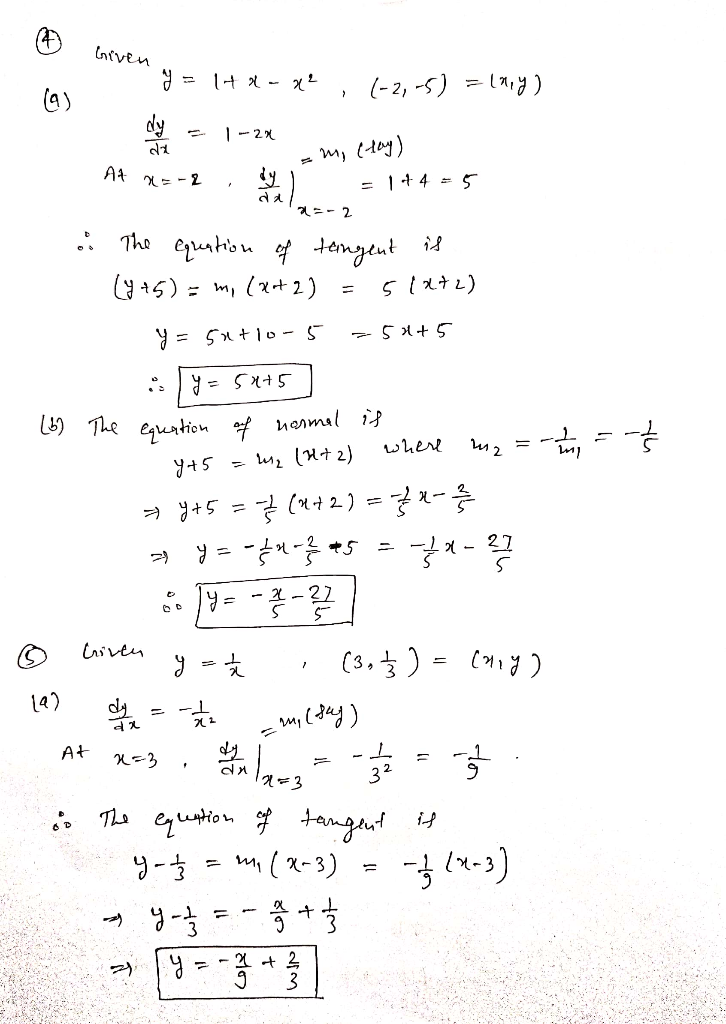 ④ Given
y = 1 + x - x² , (-2, -5) = (x, y)
(a)
dy/dx = 1 - 2x
At x = -2 , dy/dx |x=-2 = m₁ (say) = 1 + 4 = 5
∴ The equation of tangent is
(y + 5) = m₁ (x + 2) = 5 (x + 2)
y = 5x + 10 - 5 = 5x + 5
∴ y = 5x + 5
(b) The equation of normal is
y + 5 = m₂ (x + 2) where m₂ = -1/m₁ = -1/5
⇒ y + 5 = -1/5 (x + 2) = -1/5 x - 2/5
⇒ y = -1/5 x - 2/5 - 5 = -1/5 x - 27/5
∴ y = -x/5 - 27/5
⑤ Given y = 1/x , (3, 1/3) = (x, y)
(a) dy/dx = -1/x²
At x = 3 , dy/dx |x=3 = m₁ (say) = -1/3² = -1/9 .
∴ The equation of tangent is
y - 1/3 = m₁ (x - 3) = -1/9 (x - 3)
⇒ y - 1/3 = -x/9 + 1/3
⇒ y = -x/9 + 2/3